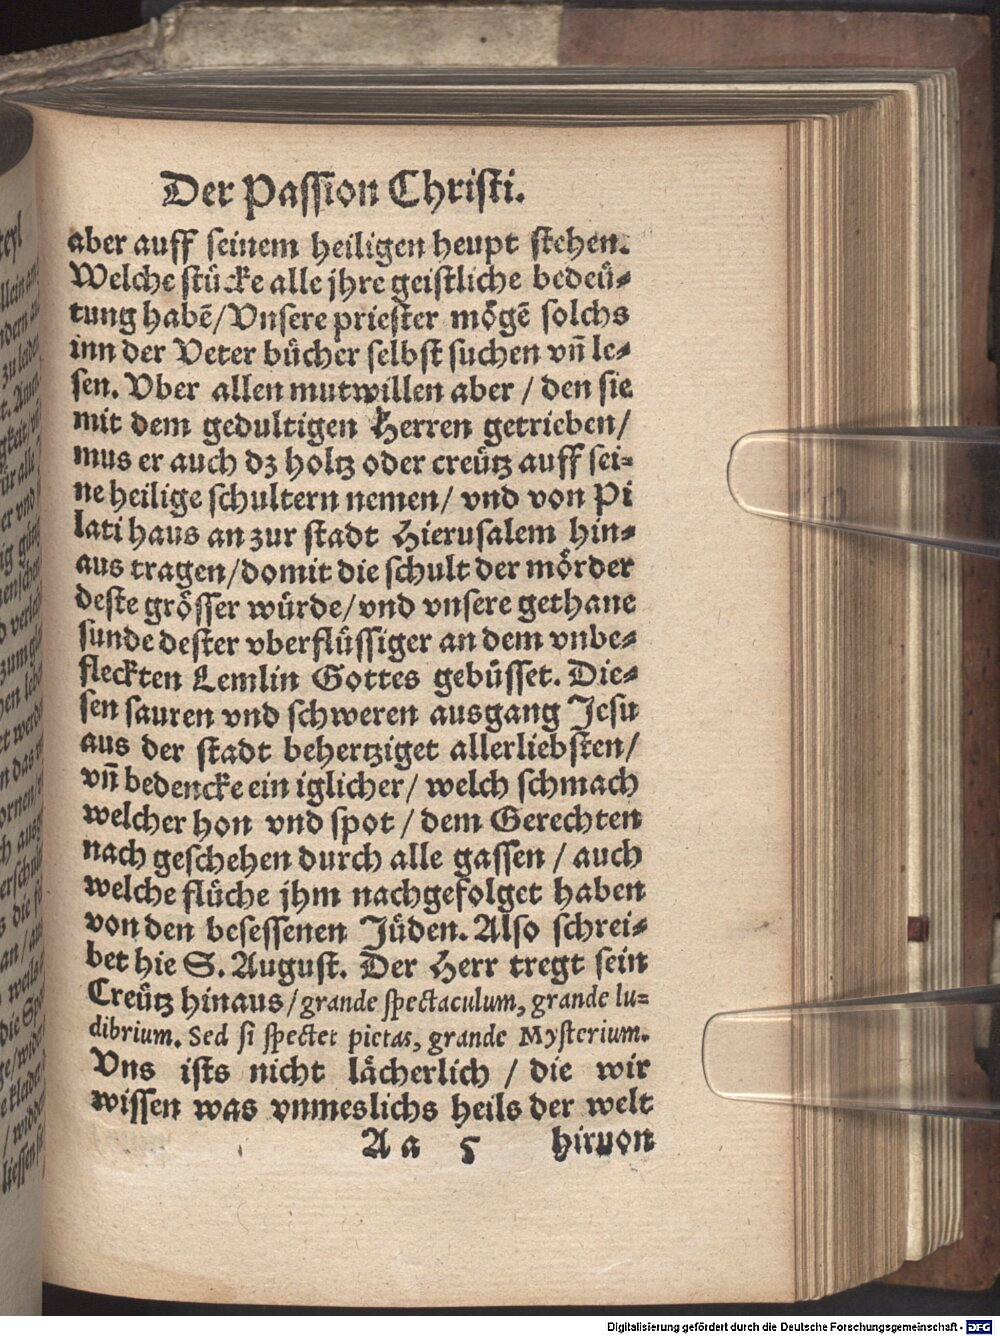 Der Passion Christi.
aber auff seinem heiligen heupt stehen.
Welche stücke alle jhre geistliche bedeü-
tung habẽ/Vnsere priester mögẽ solchs
inn der Veter bücher selbst suchen vñ le-
sen. Vber allen mutwillen aber / den sie
mit dem gedultigen Herren getrieben/
mus er auch dz holtz oder creütz auff sei-
ne heilige schultern nemen/ vnd von Pi
lati haus an zur stadt Hierusalem hin-
aus tragen/domit die schult der mörder
deste grösser würde/vnd vnsere gethane
sunde dester vberflüssiger an dem vnbe-
fleckten Lemlin Gottes gebüsset. Die-
sen sauren vnd schweren ausgang Jesu
aus der stadt behertziget allerliebsten/
vñ bedencke ein iglicher/ welch schmach
welcher hon vnd spot / dem Gerechten
nach geschehen durch alle gassen / auch
welche flüche jhm nachgefolget haben
von den besessenen Jüden. Also schrei-
bet hie S. August. Der Herr tregt sein
Creütz hinaus/grande spectaculum, grande lu-
dibrium. Sed si spectet pietas, grande Mysterium.
Vns ists nicht lächerlich / die wir
wissen was vnmeslichs heils der welt
A a 5 hiruon
Digitalisierung gefördert durch die Deutsche Forschungsgemeinschaft - DFG